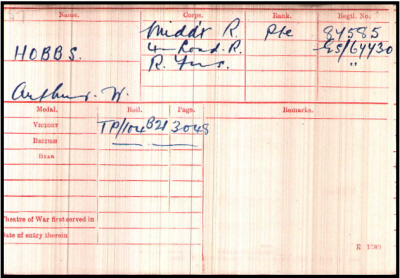 Name. Corps. Rank. Regtl. No.
Middx R. Pte 84585
HOBBS. 4- Lond. R. GS/64430
R. Fus. "
Arthur. W.
Medal. Roll. Page. Remarks.
VICTORY TP/104B21 3048
BRITISH
STAR
Theatre of War first served in
Date of entry therein
K 1380